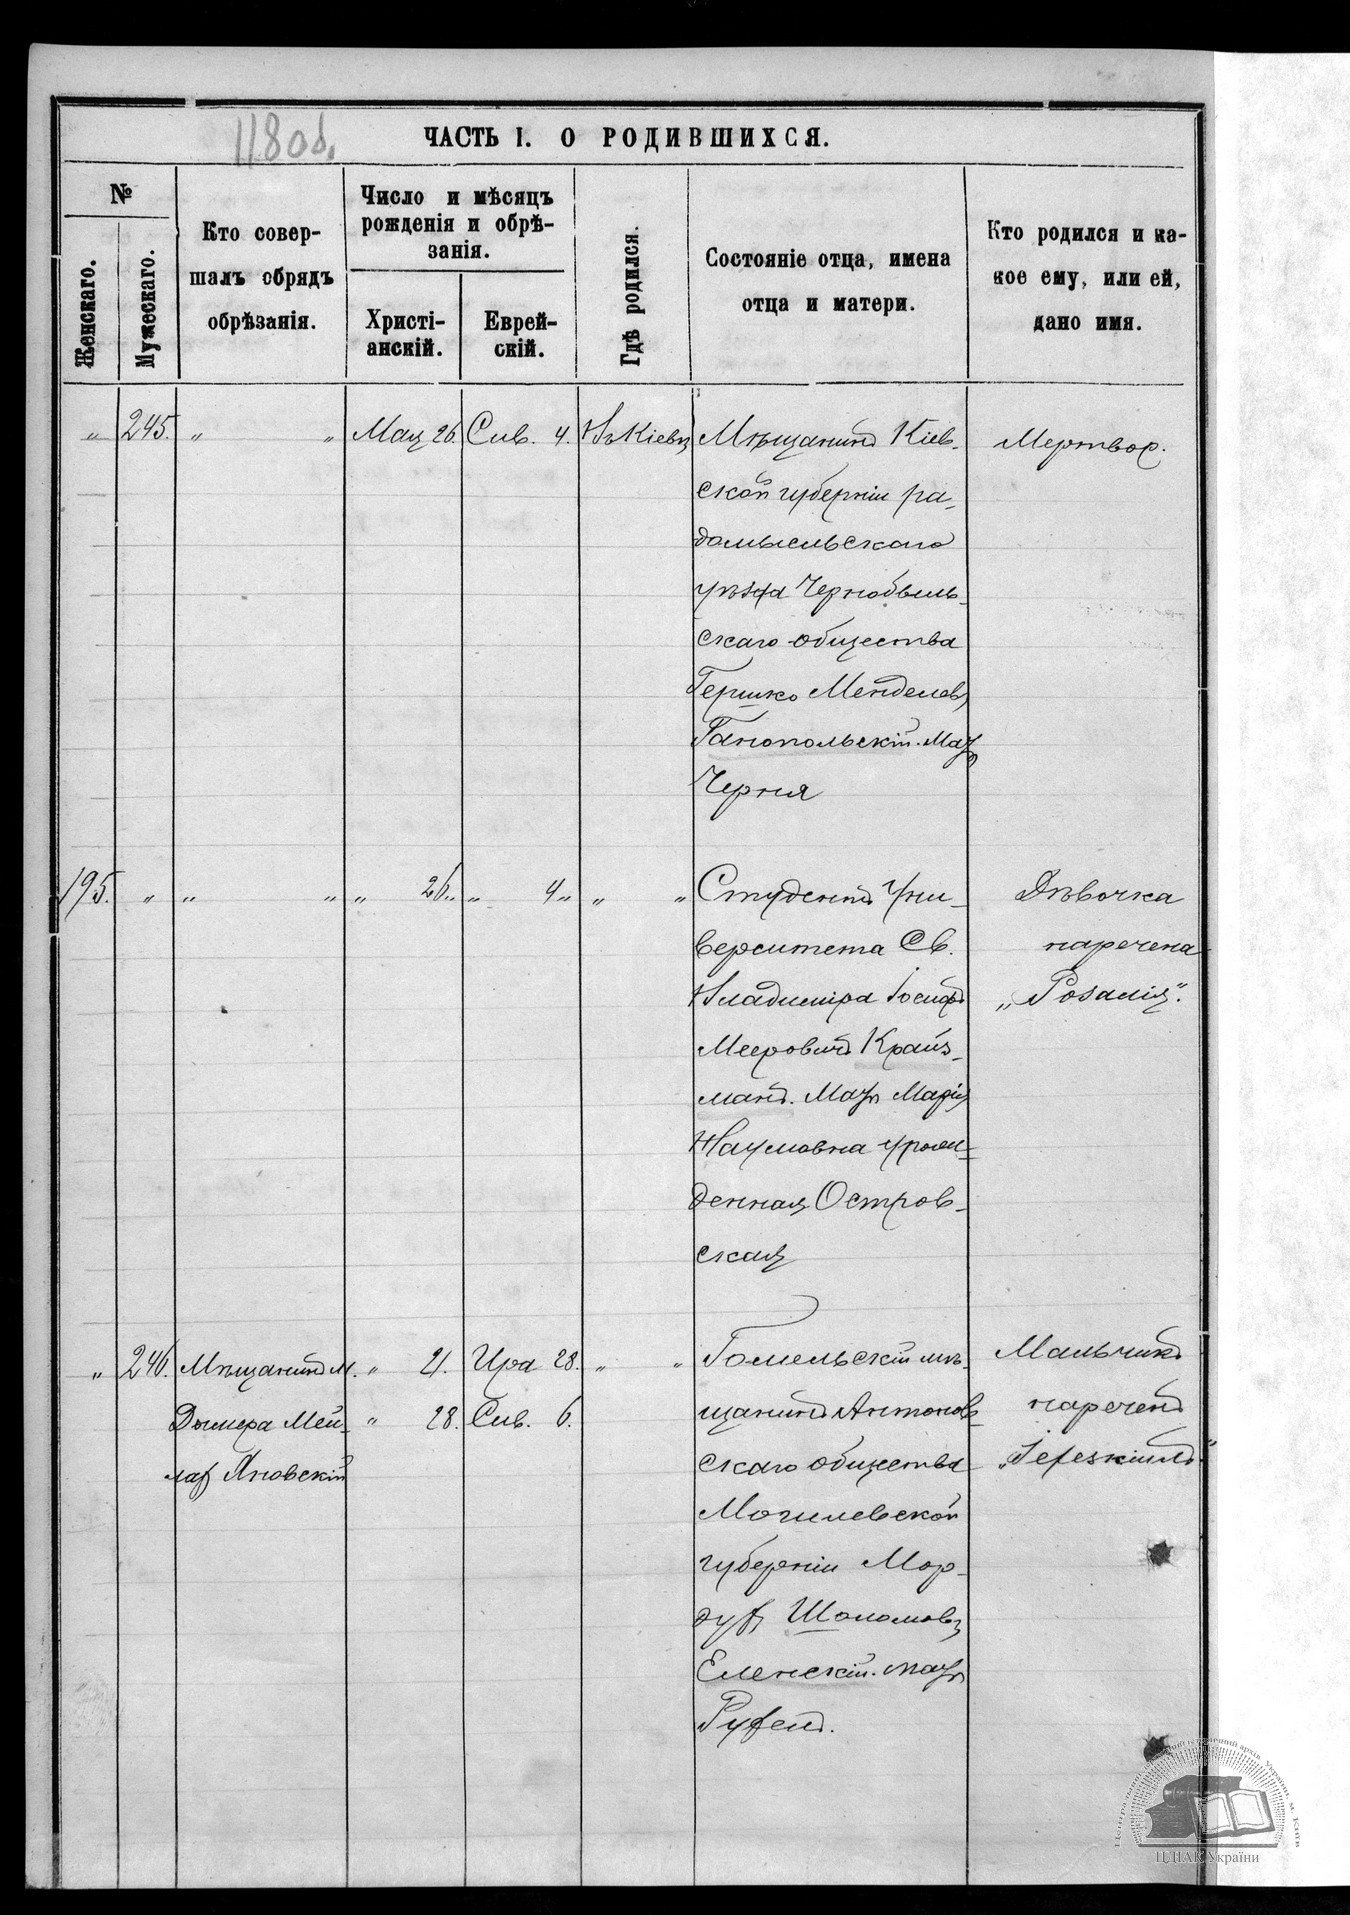 118об.
ЧАСТЬ I. О РОДИВШИХСЯ.
№
Женскаго.
Мужескаго.
Кто совер-
шалъ обрядъ
обрѣзанія.
Число и мѣсяцъ
рожденія и обрѣ-
занія.
Христі-
анскій.
Еврей-
скій.
Гдѣ родился.
Состояніе отца, имена
отца и матери.
Кто родился и ка-
кое ему, или ей,
дано имя.
„ 245. „ „ Мая 26. Сив. 4. Въ Кіевѣ
Мѣщанинъ Кіев-
ской губерніи ра-
домысльскаго
уѣзда Чернобыль-
скаго общества
Гершко Менделевъ
Ганопольскій. Мать
Черня
Мертвор.
195. „ „ „ „ 26 „ „ 4 „ „ „
Студентъ Уни-
верситета Св.
Владиміра Іосифъ
Мееровичъ Крайз-
манъ. Мать Марія
Наумовна урож-
денная Остров-
ская
Дѣвочка
наречена
„Розалія".
„ 246. Мѣщанинъ м.
Дымера Мей-
лах Яновскій
„ 21. Ира 28. „ „
„ 28. Сив. 6.
Гомельскій мѣ-
щанинъ Антонов-
скаго общества
Могилевской
губерніи Мор-
дух Шоломовъ
Еленскій. мать
Мальчикъ
нареченъ
ЦДІАК України